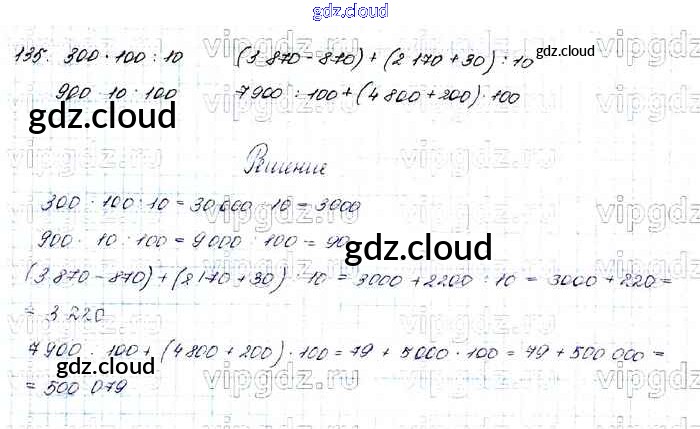 gdz.cloud
135. 300 · 100 : 10 (3 870 - 870) + (2 170 + 30) : 10
900 · 10 : 100 7 900 : 100 + (4 800 + 200) · 100
Решение
300 · 100 : 10 = 30 000 : 10 = 3000
900 · 10 : 100 = 9000 : 100 = 90
(3 870 - 870) + (2 170 + 30) : 10 = 3000 + 2200 : 10 = 3000 + 220 =
= 3 220
7 900 : 100 + (4 800 + 200) · 100 = 79 + 5000 · 100 = 79 + 500 000 =
= 500 079
gdz.cloud
gdz.cloud
gdz.cloud
gdz.cloud
vipgdz